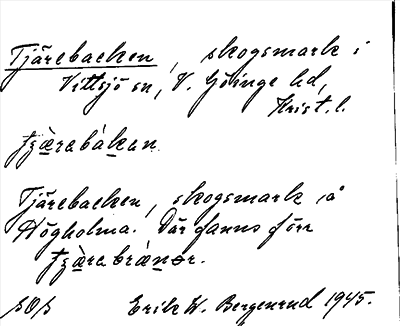 Tjärebacken, skogsmark i
Vittsjö sn, V. Göinge hd,
Krist. l.
tjærabàkan.
Tjärebacken, skogsmark på
Högholma. Där fanns förr
tjærabrànər.
Erik W. Bergenrud 1945.